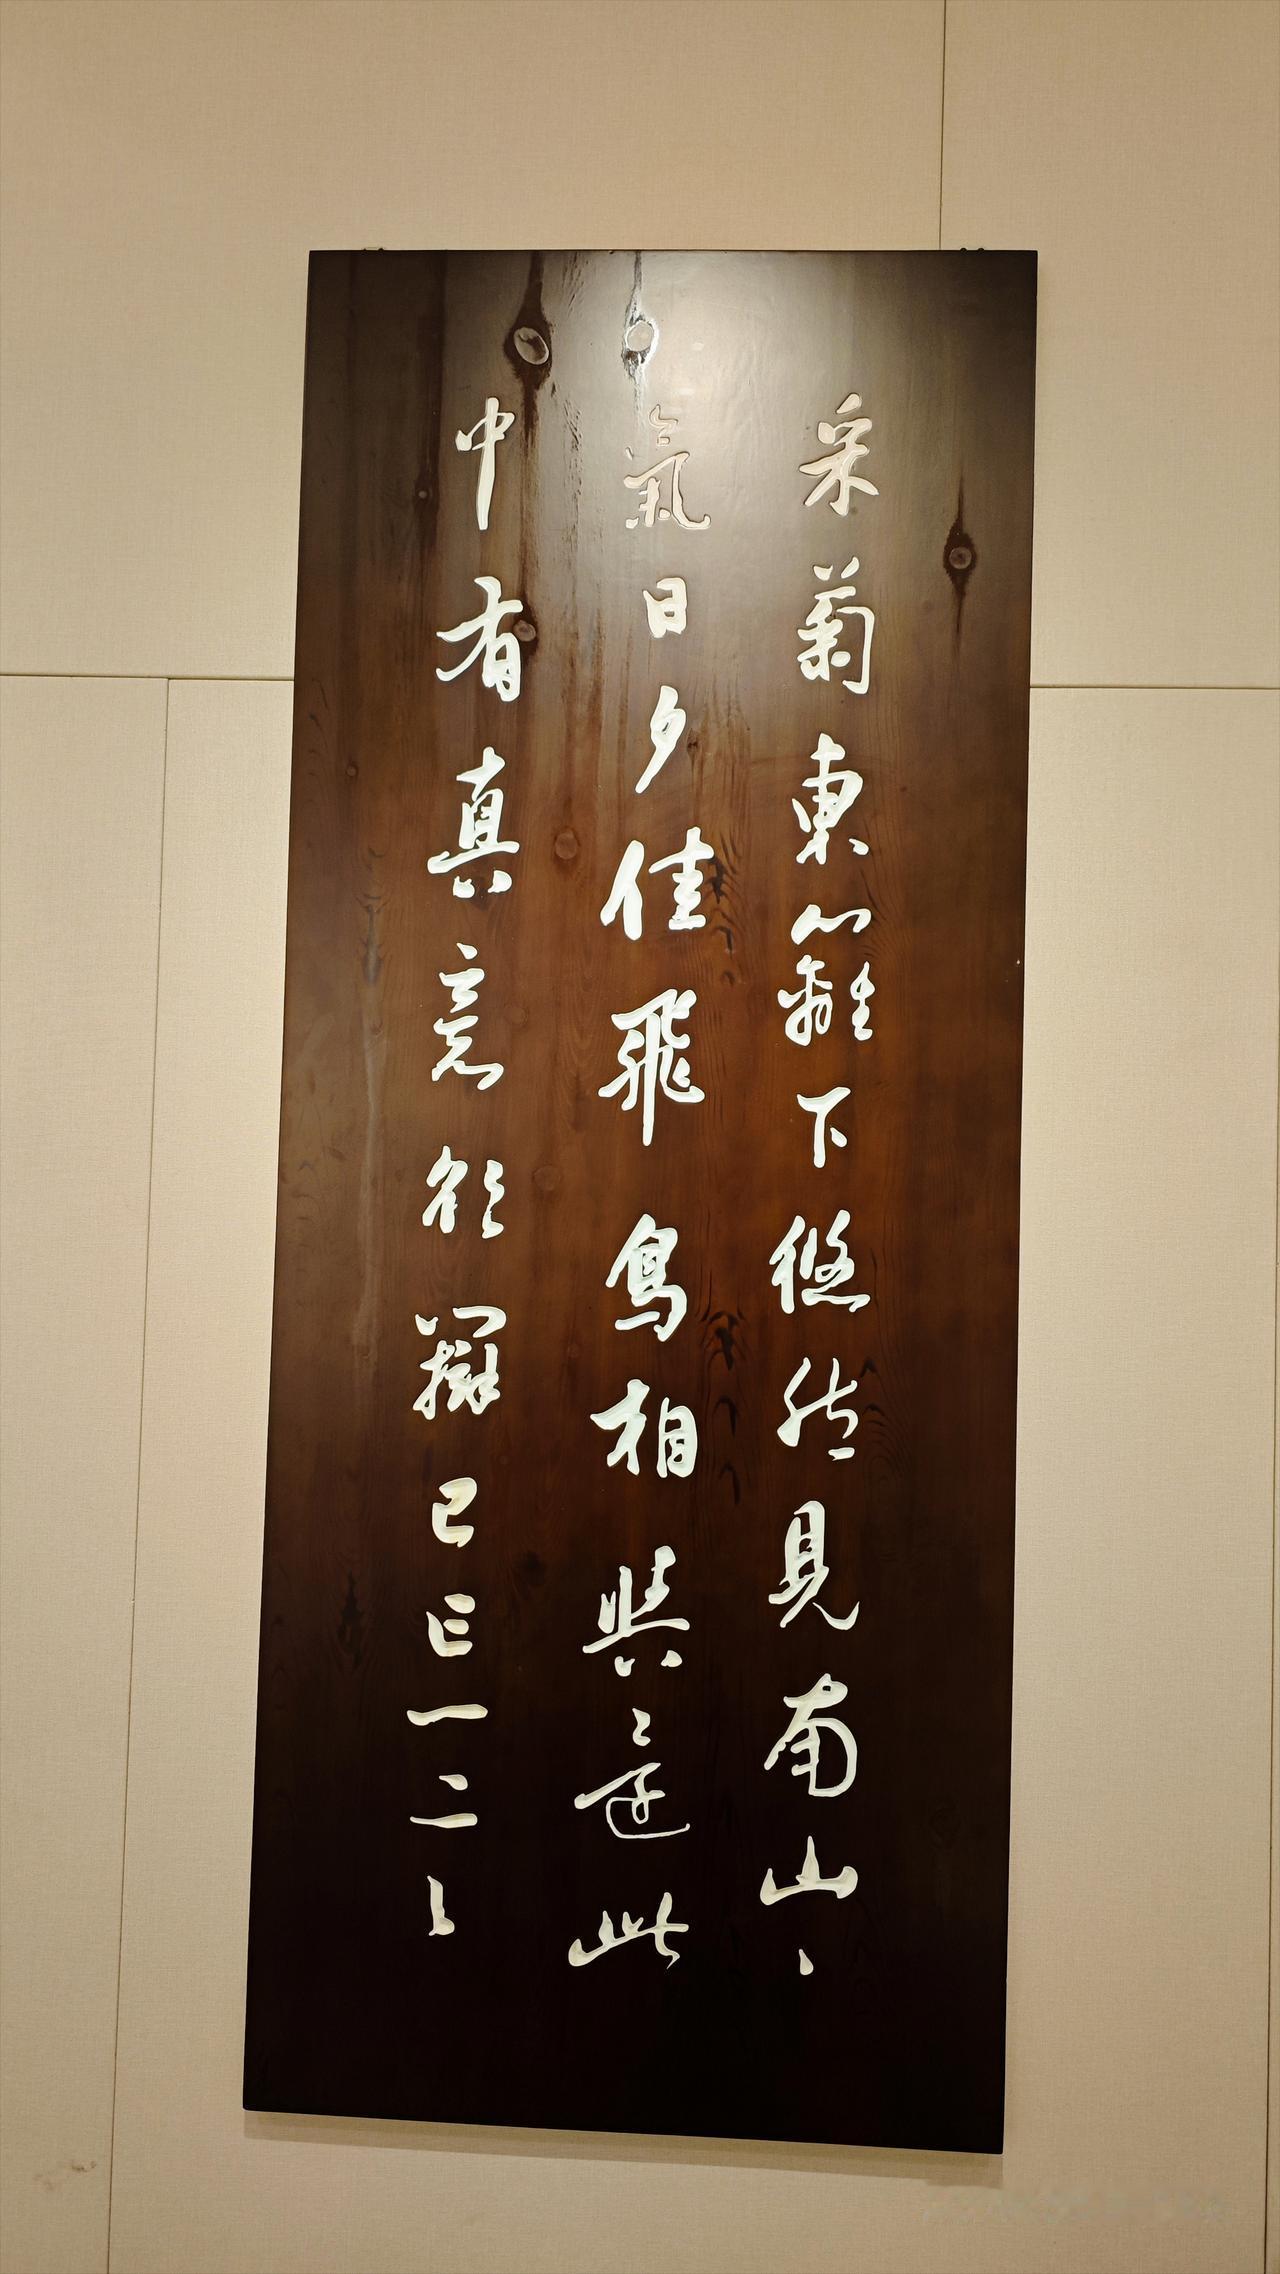 采菊東籬下悠然見南山、
氣日夕佳飛鳥相與還此
中有真意欲辯已忘言